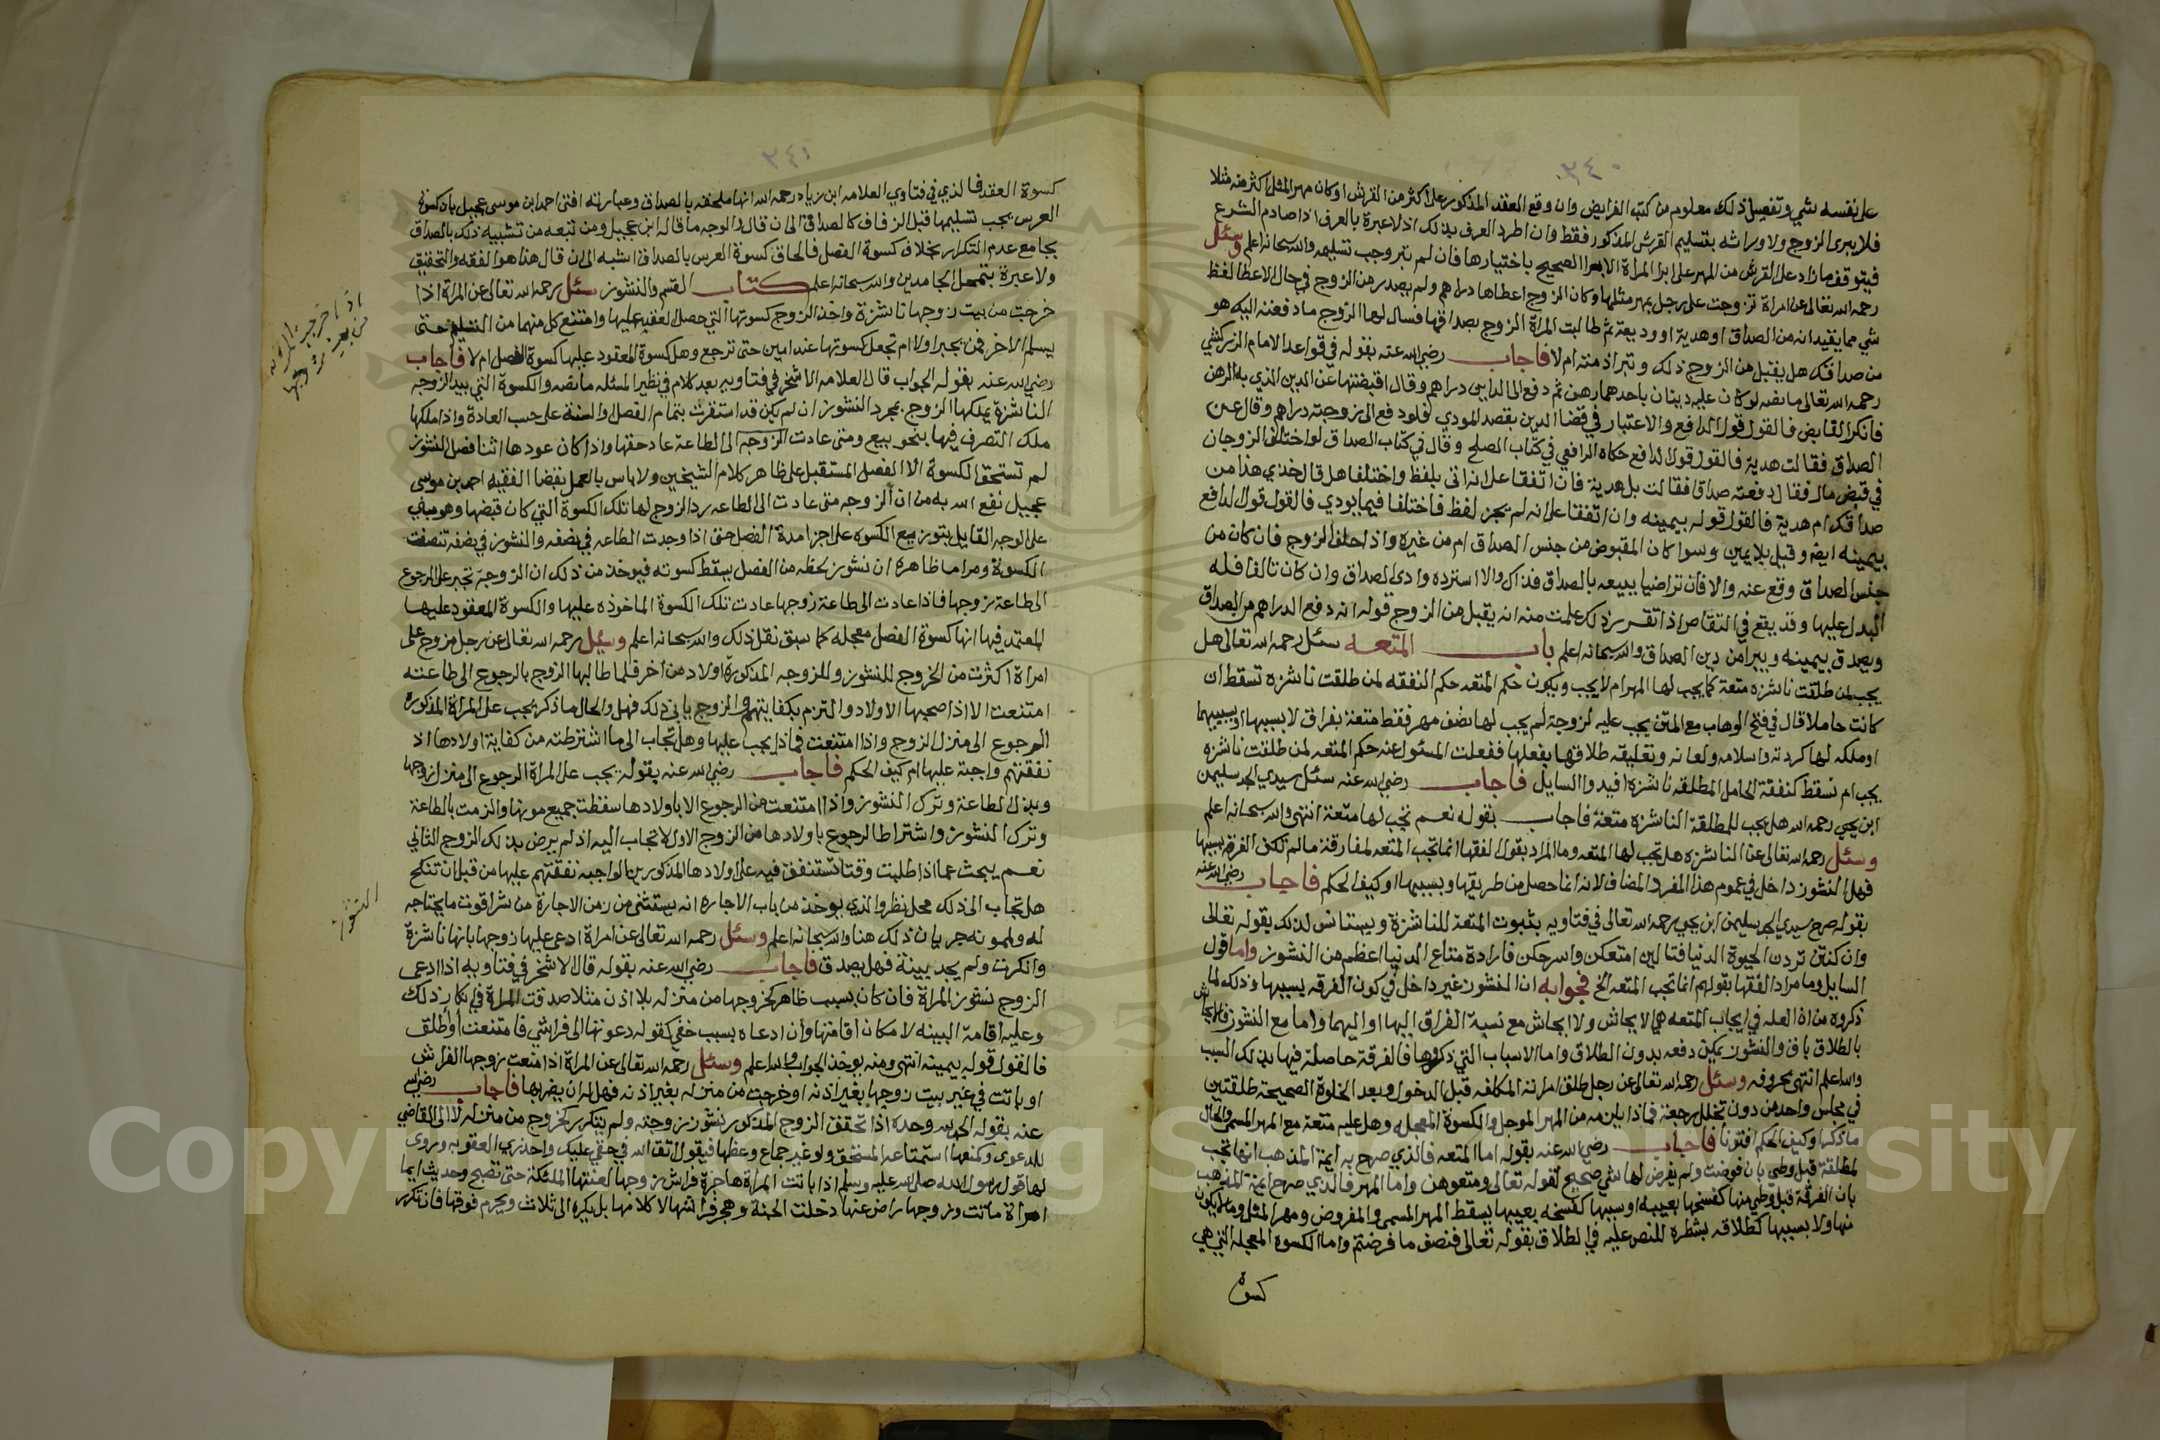 ٣٤٠
على نفسه شي وتفصيل ذلك معلوم من كتب الفرايض وان وقع العقد المذكور على اكثر من القرش او كان مهر المثل اكثر منه مثلا
فلا يبرى الزوج ولا وراثه بتسليم القرش المذكور فقط وان اطرد العرف بذلك اذ لا عبرة بالعرف اذا صادم الشرع
فيتوقف ما زاد على القرش من المهر على ابرا المراة الابرا الصحيح باختيارها فان لم تبر وجب تسليمه والله سبحانه اعلم وسئل
رحمه الله تعالى عن امراة تزوجت على رجل بمهر مثلها وكان الزوج اعطاها دراهم ولم يصدر من الزوج في حال الاعطا لفظ
شي مما يفيد انه من الصداق او هدية او وديعة ثم طالبت المراة الزوج بصداقها فسال لها الزوج ما دفعته اليك هو
من صداقك هل يقبل من الزوج ذلك وتبرا ذمته ام لا فاجاب رضي الله عنه بقوله في قواعد الامام الزركشي
رحمه الله تعالى ما نصه لو كان عليه دينان باحدهما رهن ثم دفع الى الداين دراهم وقال اقبضتها عن الدين الذي به الرهن
فانكر القابض فالقول قول الدافع والاعتبار في قضا الدين بقصد المودي فلو دفع الى زوجته دراهم وقال عن
الصداق فقالت هدية فالقول قول الدافع حكاه الرافعي في كتاب الصلح وقال في كتاب الصداق لو اختلف الزوجان
في قبض مال فقال دفعته صداقا فقالت بل هدية فان اتفقا على انه اتى بلفظ واختلفا هل قال خذي هذا من
صداقك ام هدية فالقول قوله بيمينه وان اتفقا على انه لم يجر لفظ فاختلفا فيما يودي فالقول قول الدافع
بيمينه ايضا وقيل بلا يمين وسوا كان المقبوض من جنس الصداق ام من غيره واذا حلف الزوج فان كان من
جنس الصداق وقع عنه والا فان تراضيا ببيعه بالصداق فذاك والا استرده وادى الصداق وان كان تالفا فله
البدل عليها وقد يقع في التقاص اذا تقرر ذلك علمت منه انه يقبل من الزوج قوله انه دفع الدراهم من الصداق
ويصدق بيمينه ويبرا من دين الصداق والله سبحانه اعلم باب المتعه سئل رحمه الله تعالى هل
يجب لمن طلقت ناشزه متعة كما يجب لها المهر ام لا يجب ويكون حكم المتعه حكم النفقه لمن طلقت ناشزه تسقط ان
كانت حاملا قال في فتح الوهاب مع المتن يجب عليه لزوجة لم يجب لها نصف مهر فقط متعة بفراق لا بسببها او بسببهما
او ملكه لها كردته واسلامه ولعانه وتعليقه طلاقها بفعلها ففعلت المسئول عنه حكم المتعه لمن طلقت ناشزه
يجب ام تسقط كنفقة الحامل المطلقه ناشزه افيدوا السايل فاجاب رضي الله عنه سئل سيدي الجد سليمن
ابن يحيى رحمه الله هل يجب للمطلقة الناشزه متعة فاجاب بقوله نعم تجب لها متعة انتهى والله سبحانه اعلم
وسئل رحمه الله تعالى عن الناشزه هل تجب لها المتعه وما المراد بقول الفقها انما تجب المتعه لمفارقة ما لم تكن الفرقه بسببها
فهل النشوز داخل في عموم هذا المفرد المضاف لانه انما حصل من طريقها وبسببها او كيف الحكم فاجاب رضي الله عنه
بقوله صرح سيدي الجد سليمن ابن يحيى رحمه الله تعالى في فتاويه بثبوت المتعة للناشزة ويستانس لذلك بقوله تعالى
وان كنتن تردن الحيوة الدنيا فتعالين امتعكن واسرحكن فارادة متاع الدنيا اعظم من النشوز واما قول
السايل وما مراد الفقها بقولهم انما تجب المتعه الخ فجوابه ان النشوز غير داخل في كون الفرقه بسببها وذلك لما
ذكروه من ان العله في ايجاب المتعه هي الايحاش ولا ايحاش مع نسبة الفراق اليها او اليهما واما مع النشوز فالايحاش
بالطلاق باق والنشوز يمكن دفعه بدون الطلاق واما الاسباب التي ذكروها فالفرقة حاصلة فيها بذلك السبب
والله اعلم انتهى بحروفه وسئل رحمه الله تعالى عن رجل طلق امراته المكلفه قبل الدخول وبعد الخلوة الصحيحة طلقتين
في مجلس واحد من دون تخلل رجعة فماذا يلزمه من المهر الموجل والكسوة المعجله وهل عليه متعة مع المهر المسمى والحال
ما ذكر او كيف الحكم افتونا فاجاب رضي الله عنه بقوله اما المتعه فالذي صرح به ايمة المذهب انها تجب
لمطلقة قبل وطي بان فوضت ولم يفرض لها شي صحيح لقوله تعالى ومتعوهن واما المهر فالذي صرح ايمة المذهب
بان الفرقة قبل وطي منها كفسخها بعيبه او بسببها كفسخه بعيبها يسقط المهر المسمى والمفروض ومهر المثل وما لا يكون
منها ولا بسببها كطلاقه يشطره للنص عليه في الطلاق بقوله تعالى فنصف ما فرضتم واما الكسوة المعجله التي هي
كسوة
٣٤١
كسوة العقد فالذي في فتاوي العلامه ابن زياد رحمه الله انها ملحقه بالصداق وعبارته افتى احمد ابن موسى عجيل بان كسوة
العرس يجب تسليمها قبل الزفاف كالصداق الى ان قال والوجه ما قاله ابن عجيل ومن تبعه من تشبيه ذلك بالصداق
بجامع عدم التكرار بخلاف كسوة الفصل فالحاق كسوة العرس بالصداق اشبه الى ان قال هذا هو الفقه والتحقيق
ولا عبرة بتمحل الجامدين والله سبحانه اعلم كتاب القسم والنشوز سئل رحمه الله تعالى عن المراة اذا
خرجت من بيت زوجها ناشزة واخذ الزوج كسوتها التي حصل العقد عليها وامتنع كل منهما من التسليم حتى
يسلم الاخر فمن يجبر اولا ام تجعل كسوتها عند امين حتى ترجع وهل كسوة المعقود عليها كسوة الفصل ام لا فاجاب
رضي الله عنه بقوله الجواب قال العلامه الاشخر في فتاويه بعد كلام في نظير المسئله ما نصه والكسوة التي بيد الزوجه
الناشزة يملكها الزوج بمجرد النشوز ان لم يكن قد استقرت بتمام الفصل او السنة على حسب العادة واذا ملكها
ملك التصرف فيها بنحو بيع ومتى عادت الزوجه الى الطاعة عاد حقها واذا كان عودها اثنا فصل النشوز
لم تستحق الكسوة الا الفصل المستقبل على ظاهر كلام الشيخين ولا باس بالعمل بقضا الفقيه احمد بن موسى
عجيل نفع الله به من ان الزوجه متى عادت الى الطاعه رد الزوج لها تلك الكسوة التي كان قبضها وهو مبني
على الوجه القايل بتوزيع الكسوه على اجزا مدة الفصل حتى اذا وجدت الطاعه في نصفه والنشوز في نصفه تنصفت
الكسوة ومر اما ظاهره ان نشوز لحظه من الفصل يسقط كسوته فيوخذ من ذلك ان الزوجة تجبر على الرجوع
الى طاعة زوجها فاذا عادت الى طاعة زوجها عادت تلك الكسوة الماخوذه عليها والكسوة المعقود عليها
المعتمد فيها انها كسوة الفصل معجله كما سبق نقل ذلك والله سبحانه اعلم وسئل رحمه الله تعالى عن رجل مزوج على
امراة اكثرت من الخروج للنشوز وللزوجه المذكورة اولاد من اخر فلما طالبها الزوج بالرجوع الى طاعته
امتنعت الا اذا صحبها الاولاد والتزم بكفايتهم والزوج يابى ذلك فهل والحال ما ذكر يجب على المراة المذكوره
الرجوع الى منزل الزوج واذا امتنعت فماذا يجب عليها وهل تجاب الى ما اشترطته من كفاية اولادها اذ
نفقتهم واجبة عليها ام كيف الحكم فاجاب رضي الله عنه بقوله يجب على المراة الرجوع الى منزل زوجها
وبذل الطاعة وترك النشوز واذا امتنعت من الرجوع الا باولادها سقطت جميع مونها والزمت بالطاعة
وترك النشوز واشتراط الرجوع باولادها من الزوج الاول لا تجاب اليه اذ لم يرض بذلك الزوج الثاني
نعم يبحث عما اذا طلبت وقتا تستنفق فيه على اولادها المذكورين الواجبه نفقتهم عليها من قبل ان تنكح
هل تجاب الى ذلك محل نظر والذي يوخذ من باب الاجاره انه يستثنى من زمن الاجارة من شرا قوت ما يحتاجه
له ولممونه جريان ذلك هنا والله سبحانه اعلم وسئل رحمه الله تعالى عن امراة ادعى عليها زوجها بانها ناشزة
وانكرت ولم يجد بينة فهل يصدق فاجاب رضي الله عنه بقوله قال الاشخر في فتاويه اذا ادعى
الزوج نشوز المراة فان كان بسبب ظاهر كخروجها من منزله بلا اذن مثلا صدقت المراة في انكار ذلك
وعليه اقامة البينه لامكان اقامتها وان ادعاه بسبب خفي كقوله دعوتها الى فراشي فامتنعت او اطلق
فالقول قوله بيمينه انتهى ومنه يوخذ الجواب والله اعلم وسئل رحمه الله تعالى عن المراة اذا منعت زوجها الفراش
او باتت في غير بيت زوجها بغير اذنه او خرجت من منزله بغير اذنه فهل له ان يضربها فاجاب رضي الله
عنه بقوله الحمد لله وحده اذا تحقق الزوج المذكور نشوز زوجته ولم يتكرر كخروج من منزله لا الى القاضي
للدعوى وكمنعها استمتاعه المستحق ولو غير جماع وعظها فيقول اتق الله في حقي عليك واحذري العقوبه وروى
لها قول رسول الله صلى الله عليه وسلم اذا باتت المراة هاجرة فراش زوجها لعنتها الملئكة حتى تصبح وحديث ايما
امراة ماتت وزوجها راض عنها دخلت الجنة وهجر فراشها لا كلامها بل يكره الى ثلاث ويحرم فوقها فان تكرر
اذا خرجت المراة
من بيت زوجها
النشوز
Copyright © King Saud University